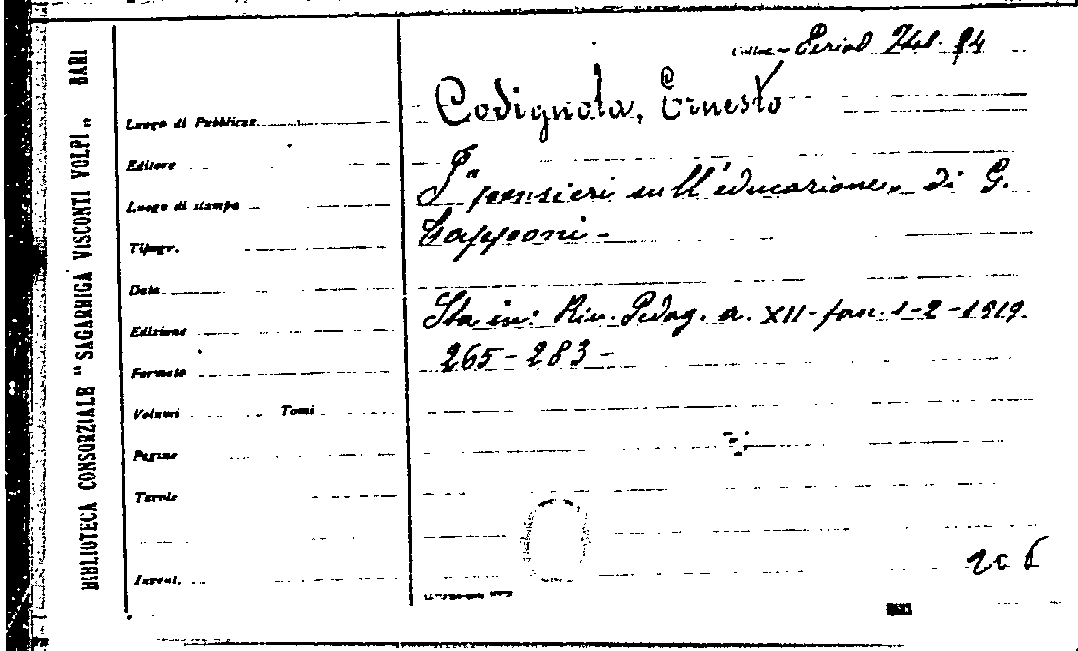 BIBLIOTECA CONSORZIALE "SAGARRIGA VISCONTI VOLPI" BARI
Period Ital. 84
Codignola, Ernesto
Luogo di Pubblicaz.
Editore
I "pensieri sull'educazione" di G.
Luogo di stampa
Capponi -
Tipogr.
Data
Sta in: Riv. Pedag. a. XII - fasc. 1-2-1919.
Edizione
265-283-
Formato
Volumi Tomi
Pagine
Tavole
Invent.